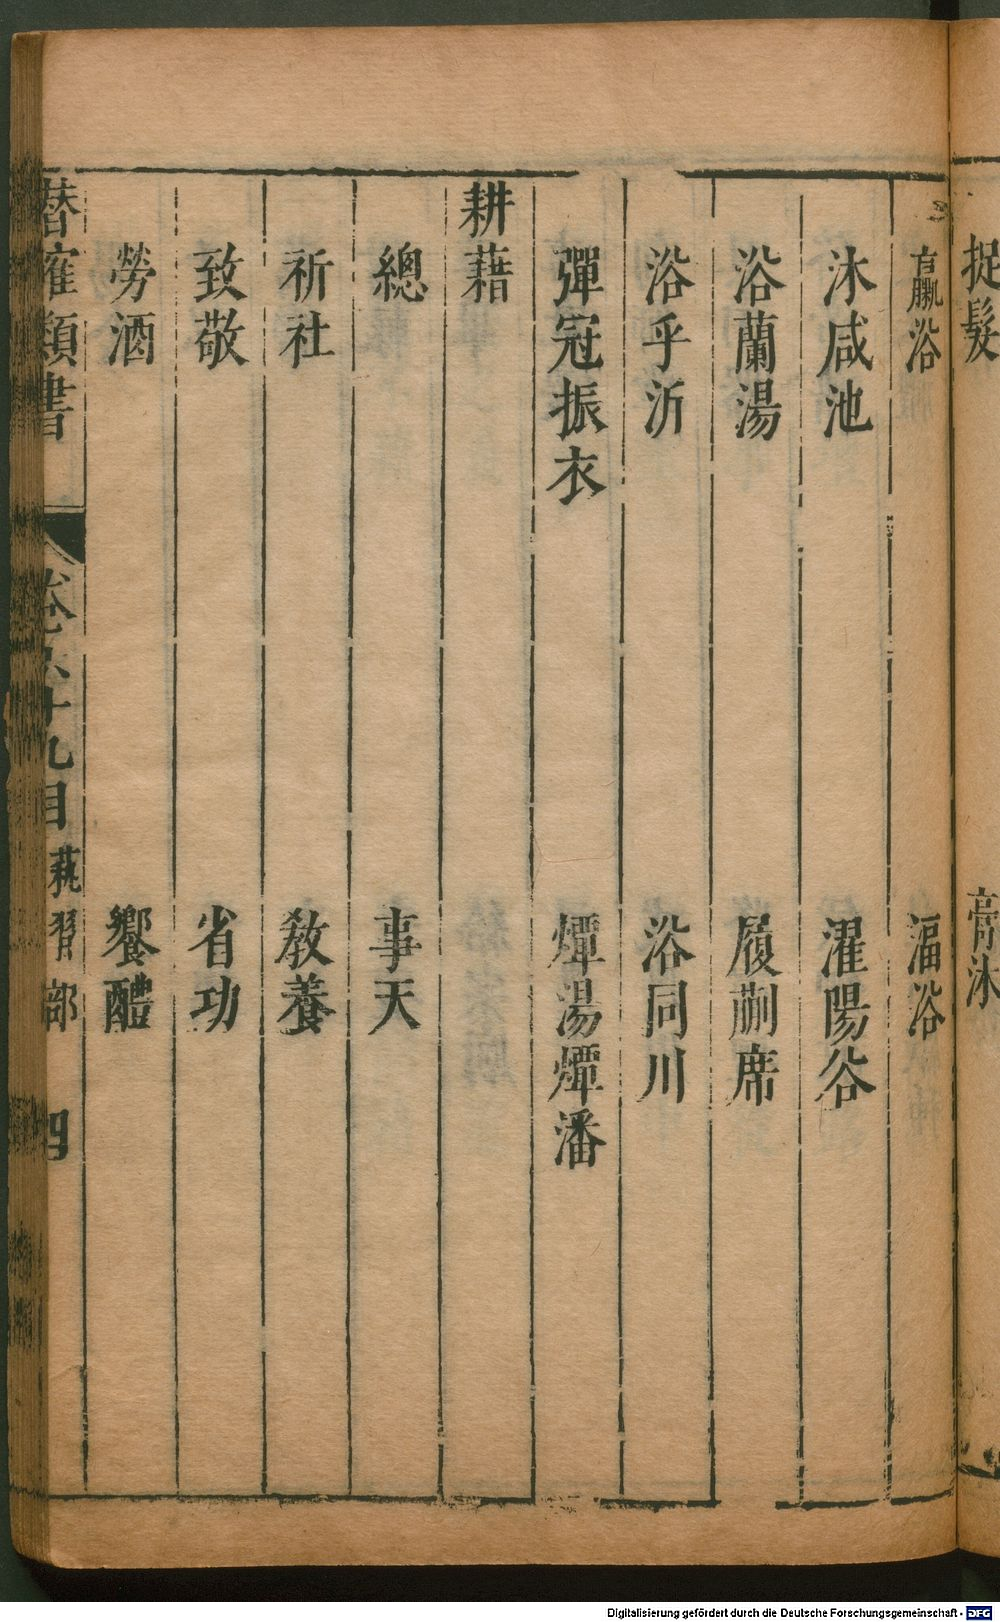 捉髮 膏沐
裸浴 湢浴
沐咸池 濯陽谷
浴蘭湯 履蒯席
浴乎沂 浴同川
彈冠振衣 燂湯燂潘
耕藉
總 事天
祈社 敎養
致敬 省功
勞酒 饗醴
潛確類書 卷五十九目 藝習部 四
Digitalisierung gefördert durch die Deutsche Forschungsgemeinschaft - DFG